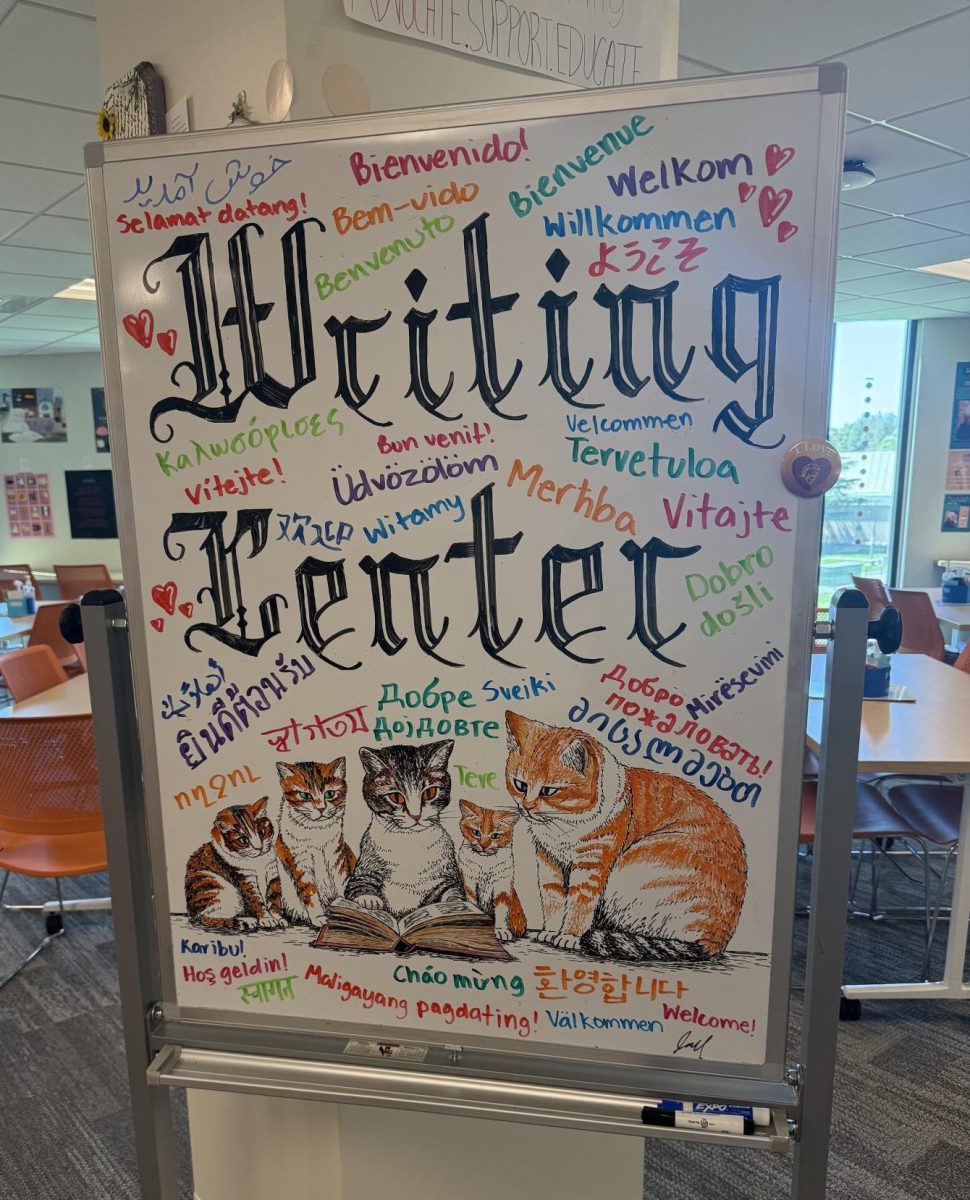 ADVOCATE.SUPPORT.EDUCATE
خوش آمدید
Bienvenido!
Bienvenue
Welkom
Selamat datang!
Bem-vido
Willkommen
Benvenuto
ようこそ
Writing
Καλωσόρισες
Bun venit!
Velcommen
Tervetuloa
Vitejte!
Üdvözölöm
Merhba
Vitajte
Witamy
Center
Dobro
došli
ยินดีต้อนรับ
Добре
Дојдовте
Sveiki
Добро
пожаловать!
Mirësevini
Teve
Karibu!
Hoş geldin!
स्वागत
Maligayang pagdating!
Chào mừng
환영합니다
Välkommen
Welcome!
EXPO